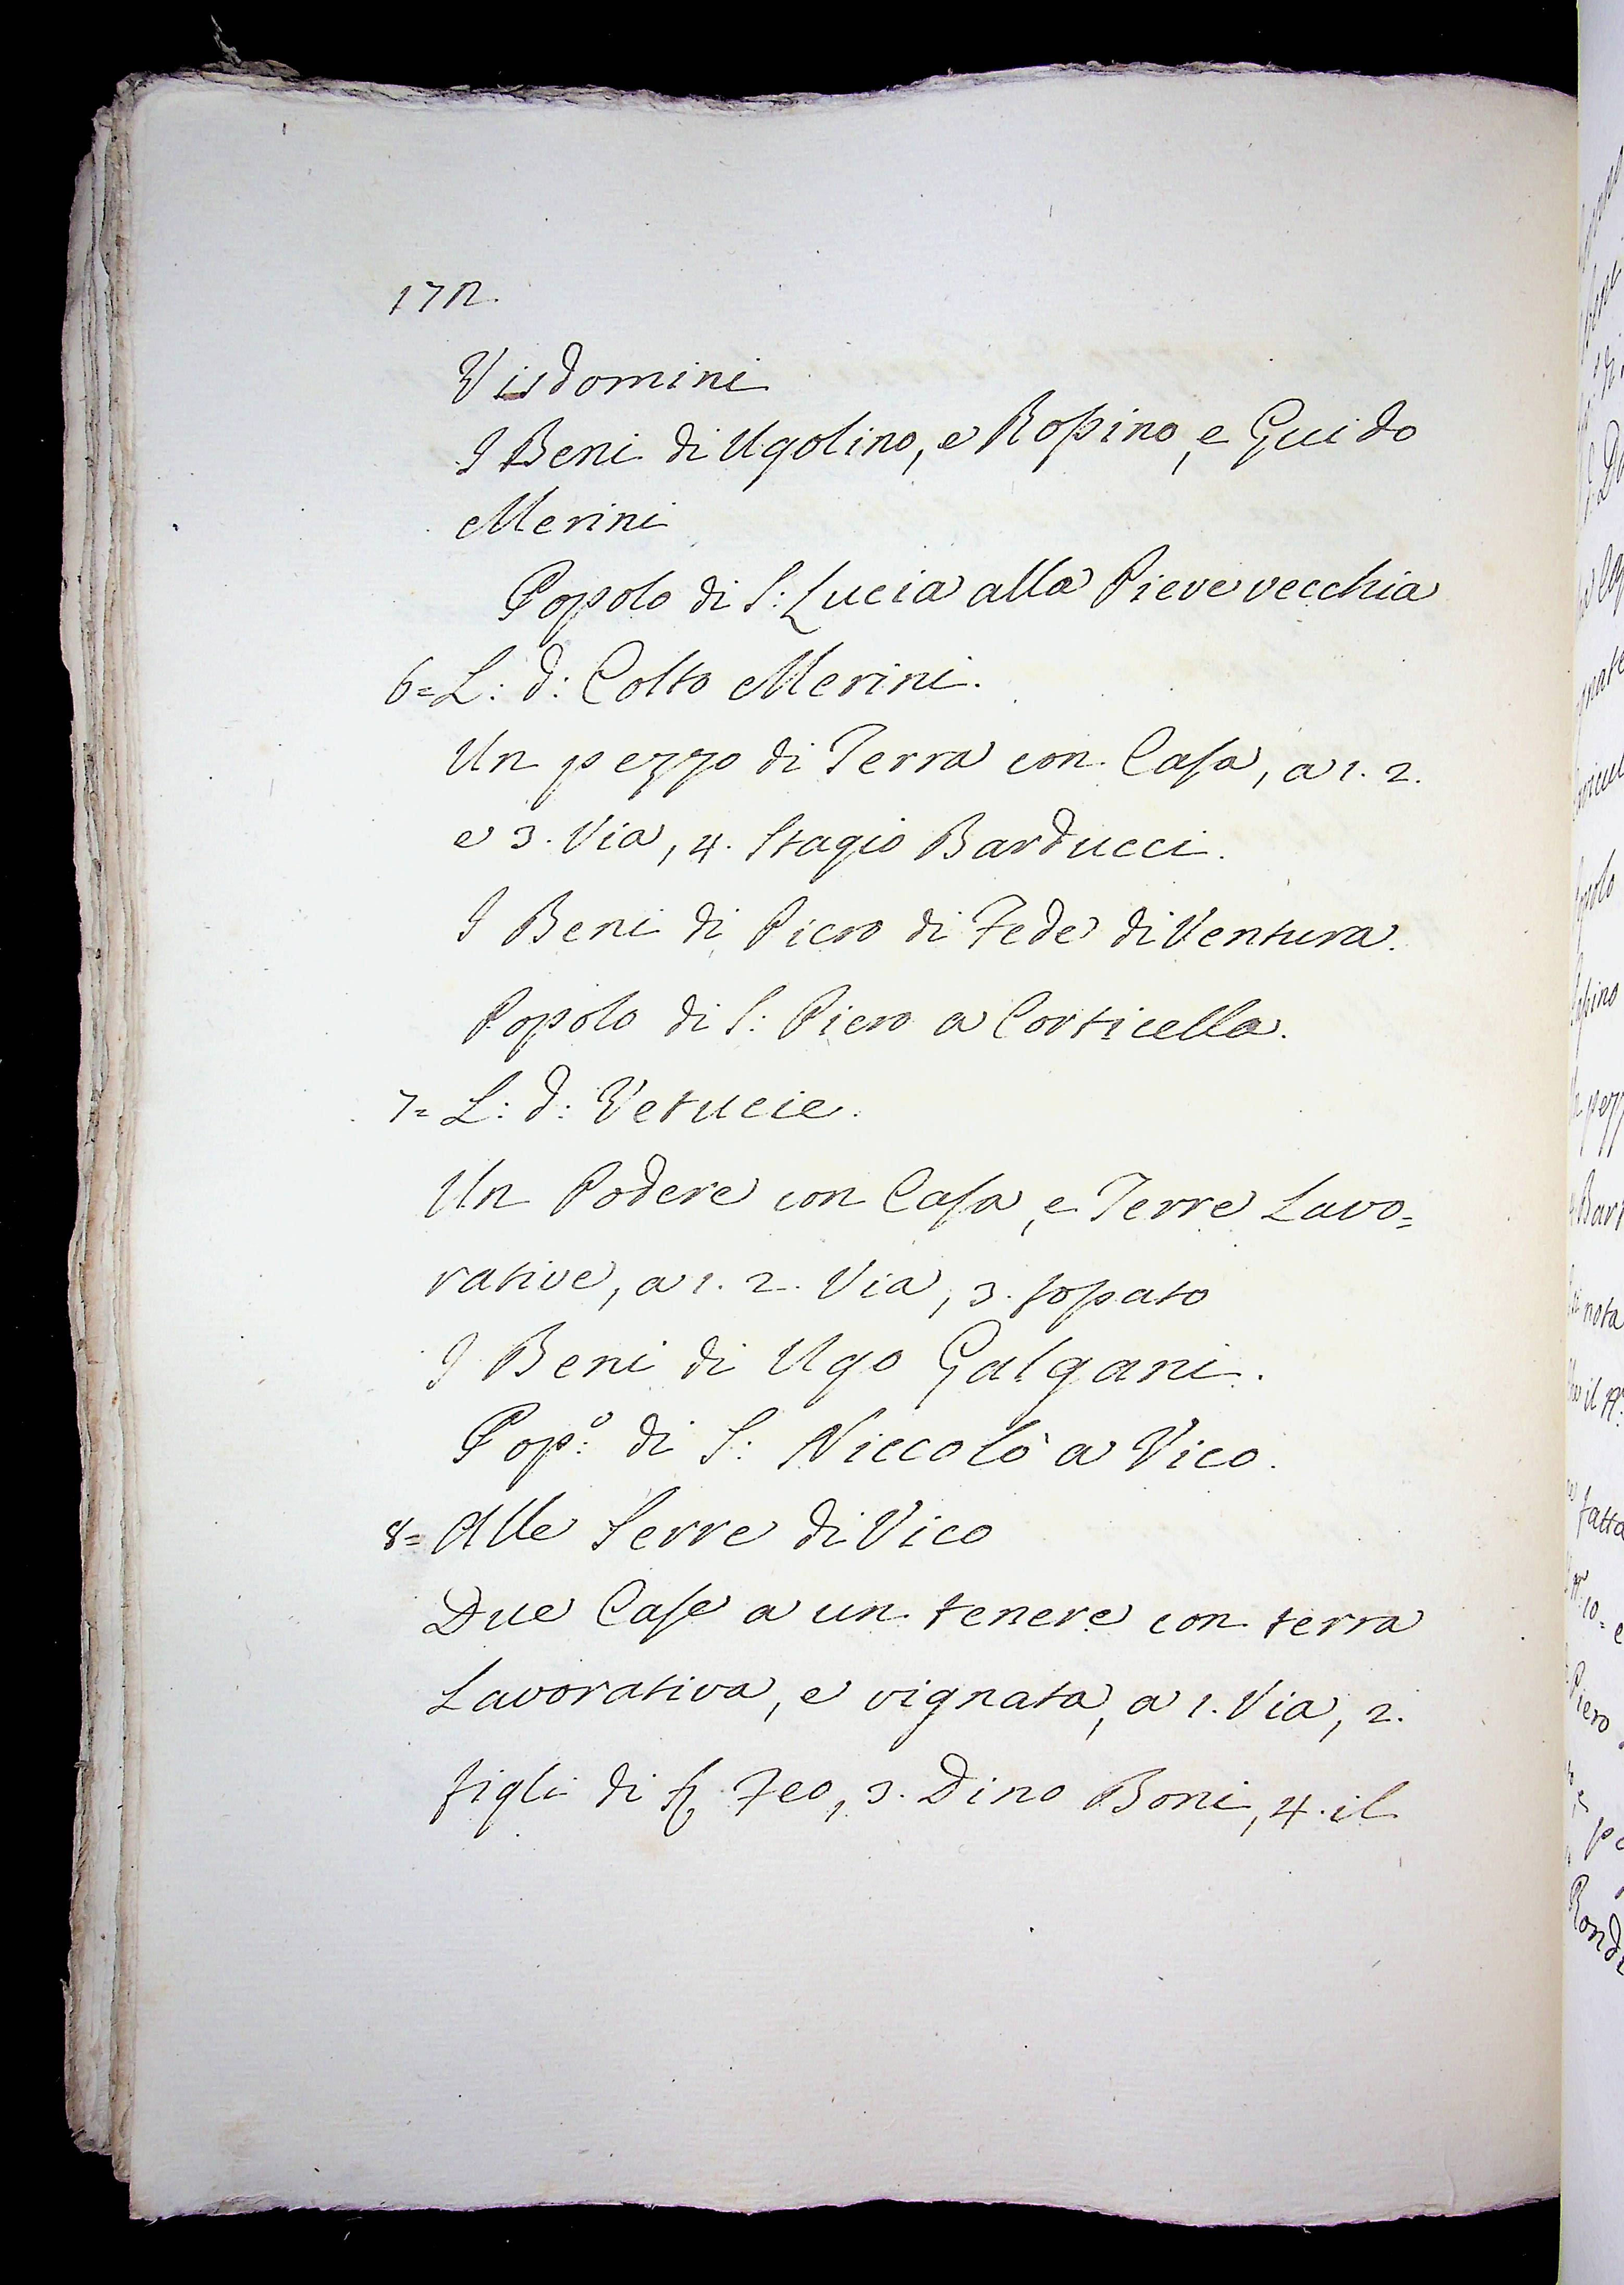 172.
Visdomini
I Beni di Ugolino, e Roſsino, e Guido
Merini
Popolo di S: Lucia alla Pieve vecchia
6= L: d: Colto Merini.
Un pezzo di Terra con Caſa, a 1. 2.
e 3. Via, 4. Stagio Barducci.
I Beni di Piero di Fede di Ventura.
Popolo di S: Piero a Corticella.
7= L: d: Vetucie.
Un Podere con Caſa, e Terre Lavo=
rative, a 1. 2. Via, 3. foſsato
I Beni di Ugo Galgani.
Pop:º di S: Niccolò a Vico.
8= Alle Serre di Vico
Due Caſe a un tenere con terra
Lavorativa, e vignata, a 1. Via, 2.
figli di Feo, 3. Dino Boni, 4. il